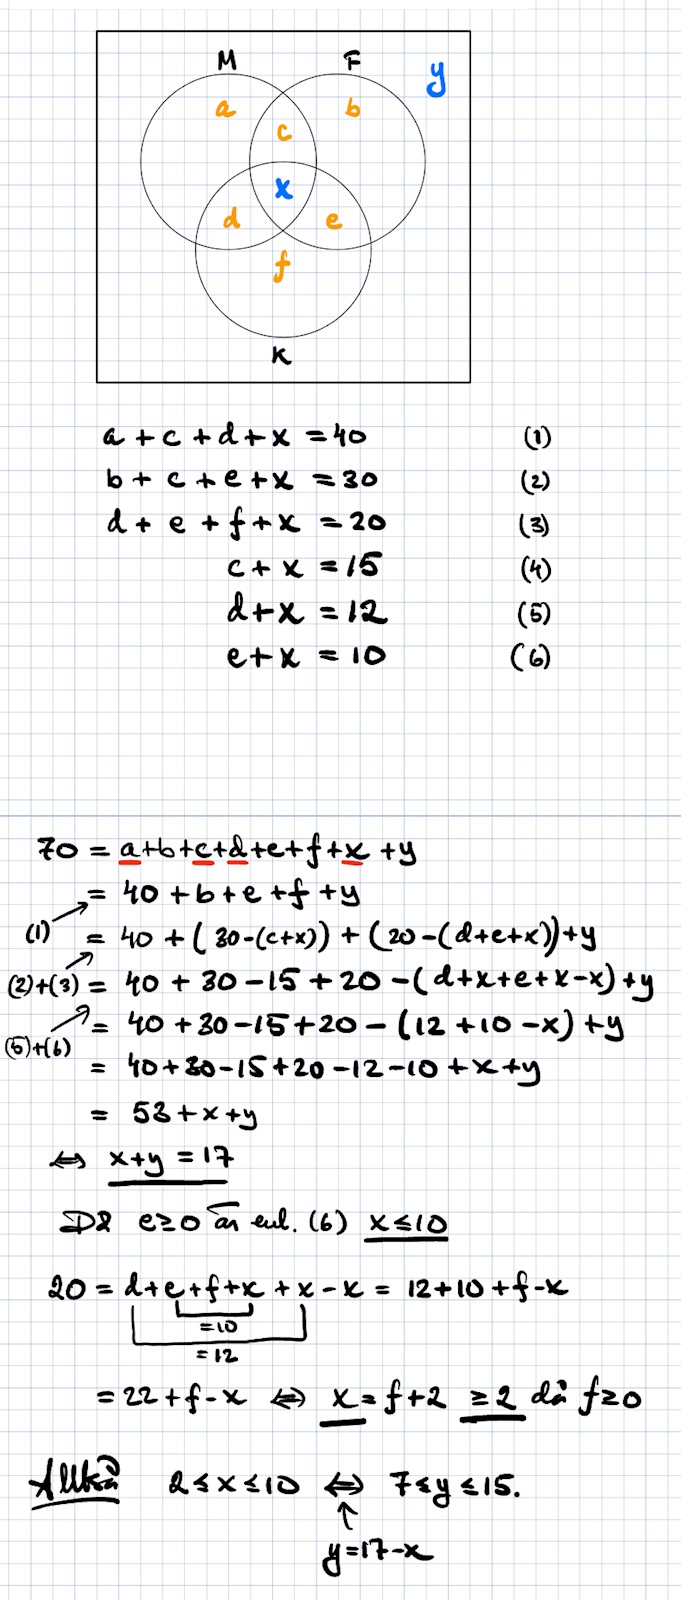 M F y
a b
c
x
d e
f
K
a + c + d + x = 40 (1)
b + c + e + x = 30 (2)
d + e + f + x = 20 (3)
c + x = 15 (4)
d + x = 12 (5)
e + x = 10 (6)
70 = a+b+c+d+e+f+x+y
= 40 + b + e + f + y
(1) = 40 + (30-(c+x)) + (20-(d+e+x))+y
(2)+(3) = 40 + 30 - 15 + 20 - (d+x+e+x-x)+y
(5)+(6) = 40+30-15+20 - (12+10-x)+y
= 40+30-15+20-12-10+x+y
= 53+x+y
⇔ x+y = 17
Då e≥0 är enl. (6) x≤10
20 = d+e+f+x+x-x = 12+10+f-x
=10
=12
= 22+f-x ⇔ x=f+2 ≥2 då f≥0
Alltså 2≤x≤10 ⇔ 7≤y≤15.
↑
y=17-x